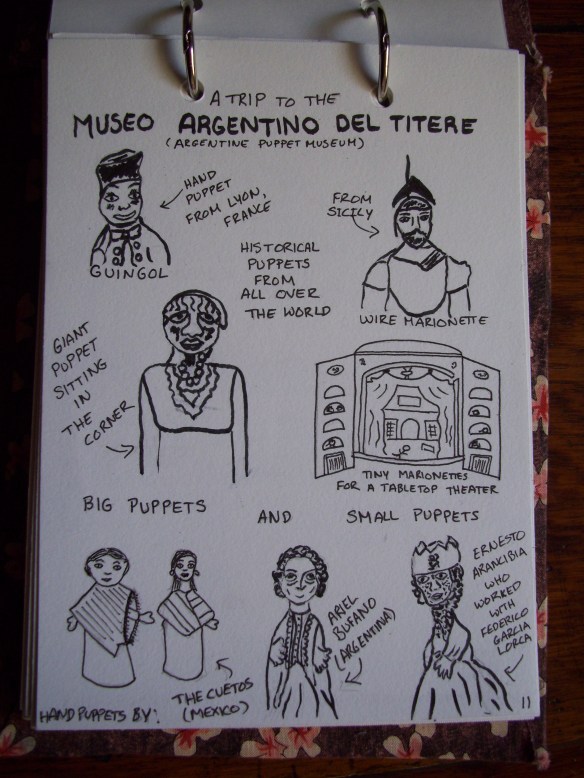 A TRIP TO THE
MUSEO ARGENTINO DEL TITERE
(ARGENTINE PUPPET MUSEUM)
HAND
PUPPET
FROM LYON,
FRANCE
GUINGOL
FROM
SICILY
WIRE MARIONETTE
HISTORICAL
PUPPETS
FROM
ALL OVER
THE WORLD
GIANT
PUPPET
SITTING
IN
THE
CORNER
TINY MARIONETTES
FOR A TABLETOP THEATER
BIG PUPPETS
AND
SMALL PUPPETS
HAND PUPPETS BY:
THE CUETOS
(MEXICO)
ARIEL
BUFANO
(ARGENTINA)
ERNESTO
ARANCIBIA
WHO
WORKED
WITH
FEDERICO
GARCIA
LORCA
11